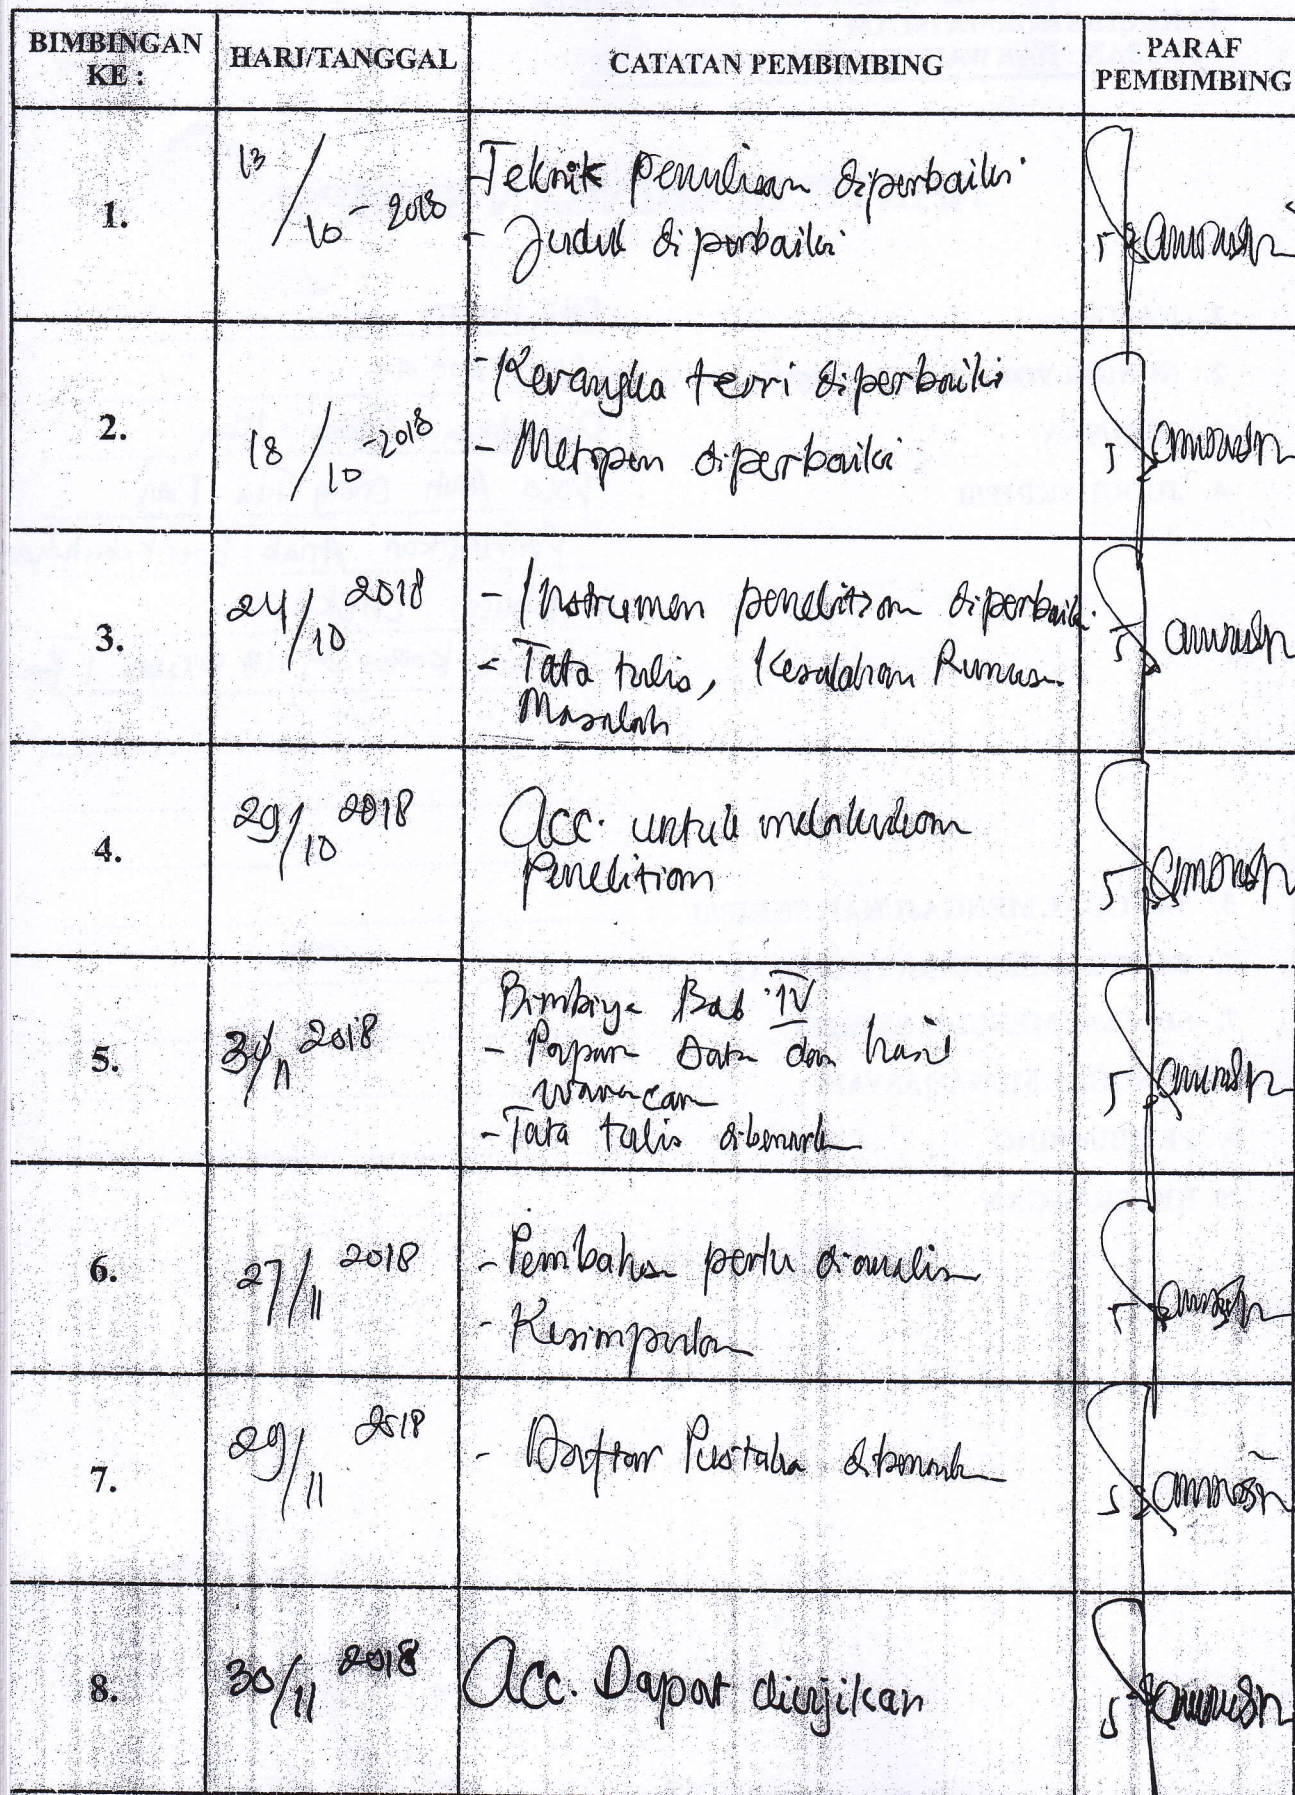 BIMBINGAN KE :
HARI/TANGGAL
CATATAN PEMBIMBING
PARAF PEMBIMBING
1.
13/10-2018
- Teknik Penulisan diperbaiki
- Judul diperbaiki
2.
18/10-2018
- Kerangka teori diperbaiki
- Metopen diperbaiki
3.
24/10 2018
- Instrumen penelitian diperbaiki
- Tata tulis, Kesalahan Rumusan
Masalah
4.
29/10 2018
Acc. untuk melakukan
Penelitian
5.
/11 2018
Bimbingan Bab IV
- Paparan Data dan hasil
wawancara
- Tata tulis dibenarkan
6.
27/11 2018
- Pembahasan perlu dianalisa
- Kesimpulan
7.
29/11 2018
- Daftar Pustaka dibenarkan
8.
30/11 2018
Acc. Dapat diujikan